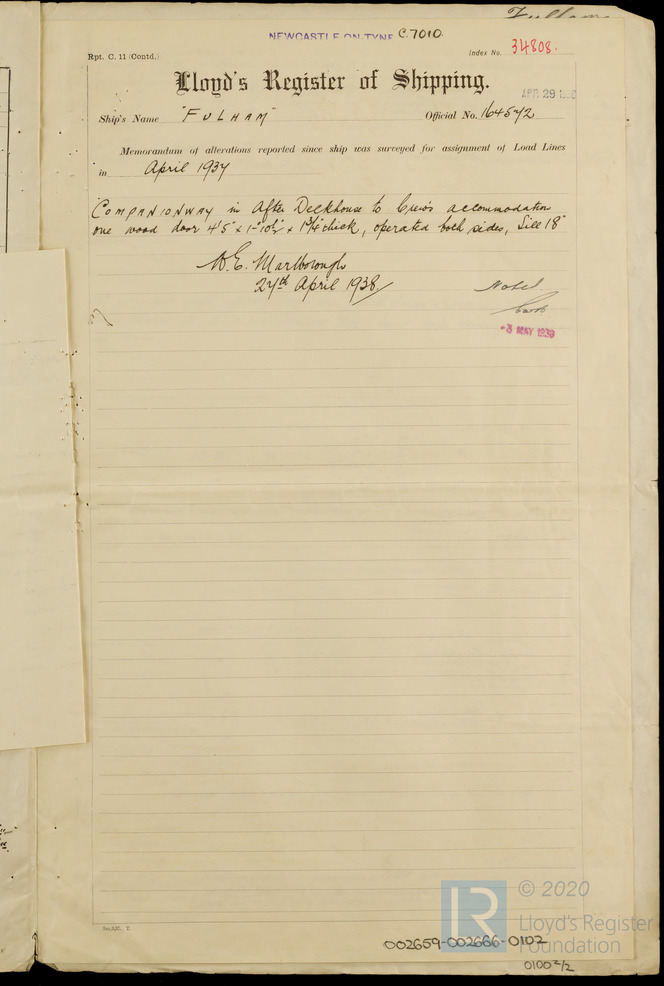 Fulham
NEWCASTLE ON TYNE C.7010.
Rpt. C. 11 (Contd.)
Index No. 34808.
Lloyd's Register of Shipping.
APR 29 1938
Ship's Name "FULHAM" Official No. 164572
Memorandum of alterations reported since ship was surveyed for assignment of Load Lines
in April 1937
COMPANIONWAY in After Deckhouse to Crew's accommodation
one wood door 4'5" x 1'-10½" x 1¾" thick, operated both sides, Sill 18"
W.E. Marlborough
27th April 1938
Noted
-3 MAY 1938
© 2020
LR
Lloyd's Register
Foundation
002659-002666-0102
0100 2/2